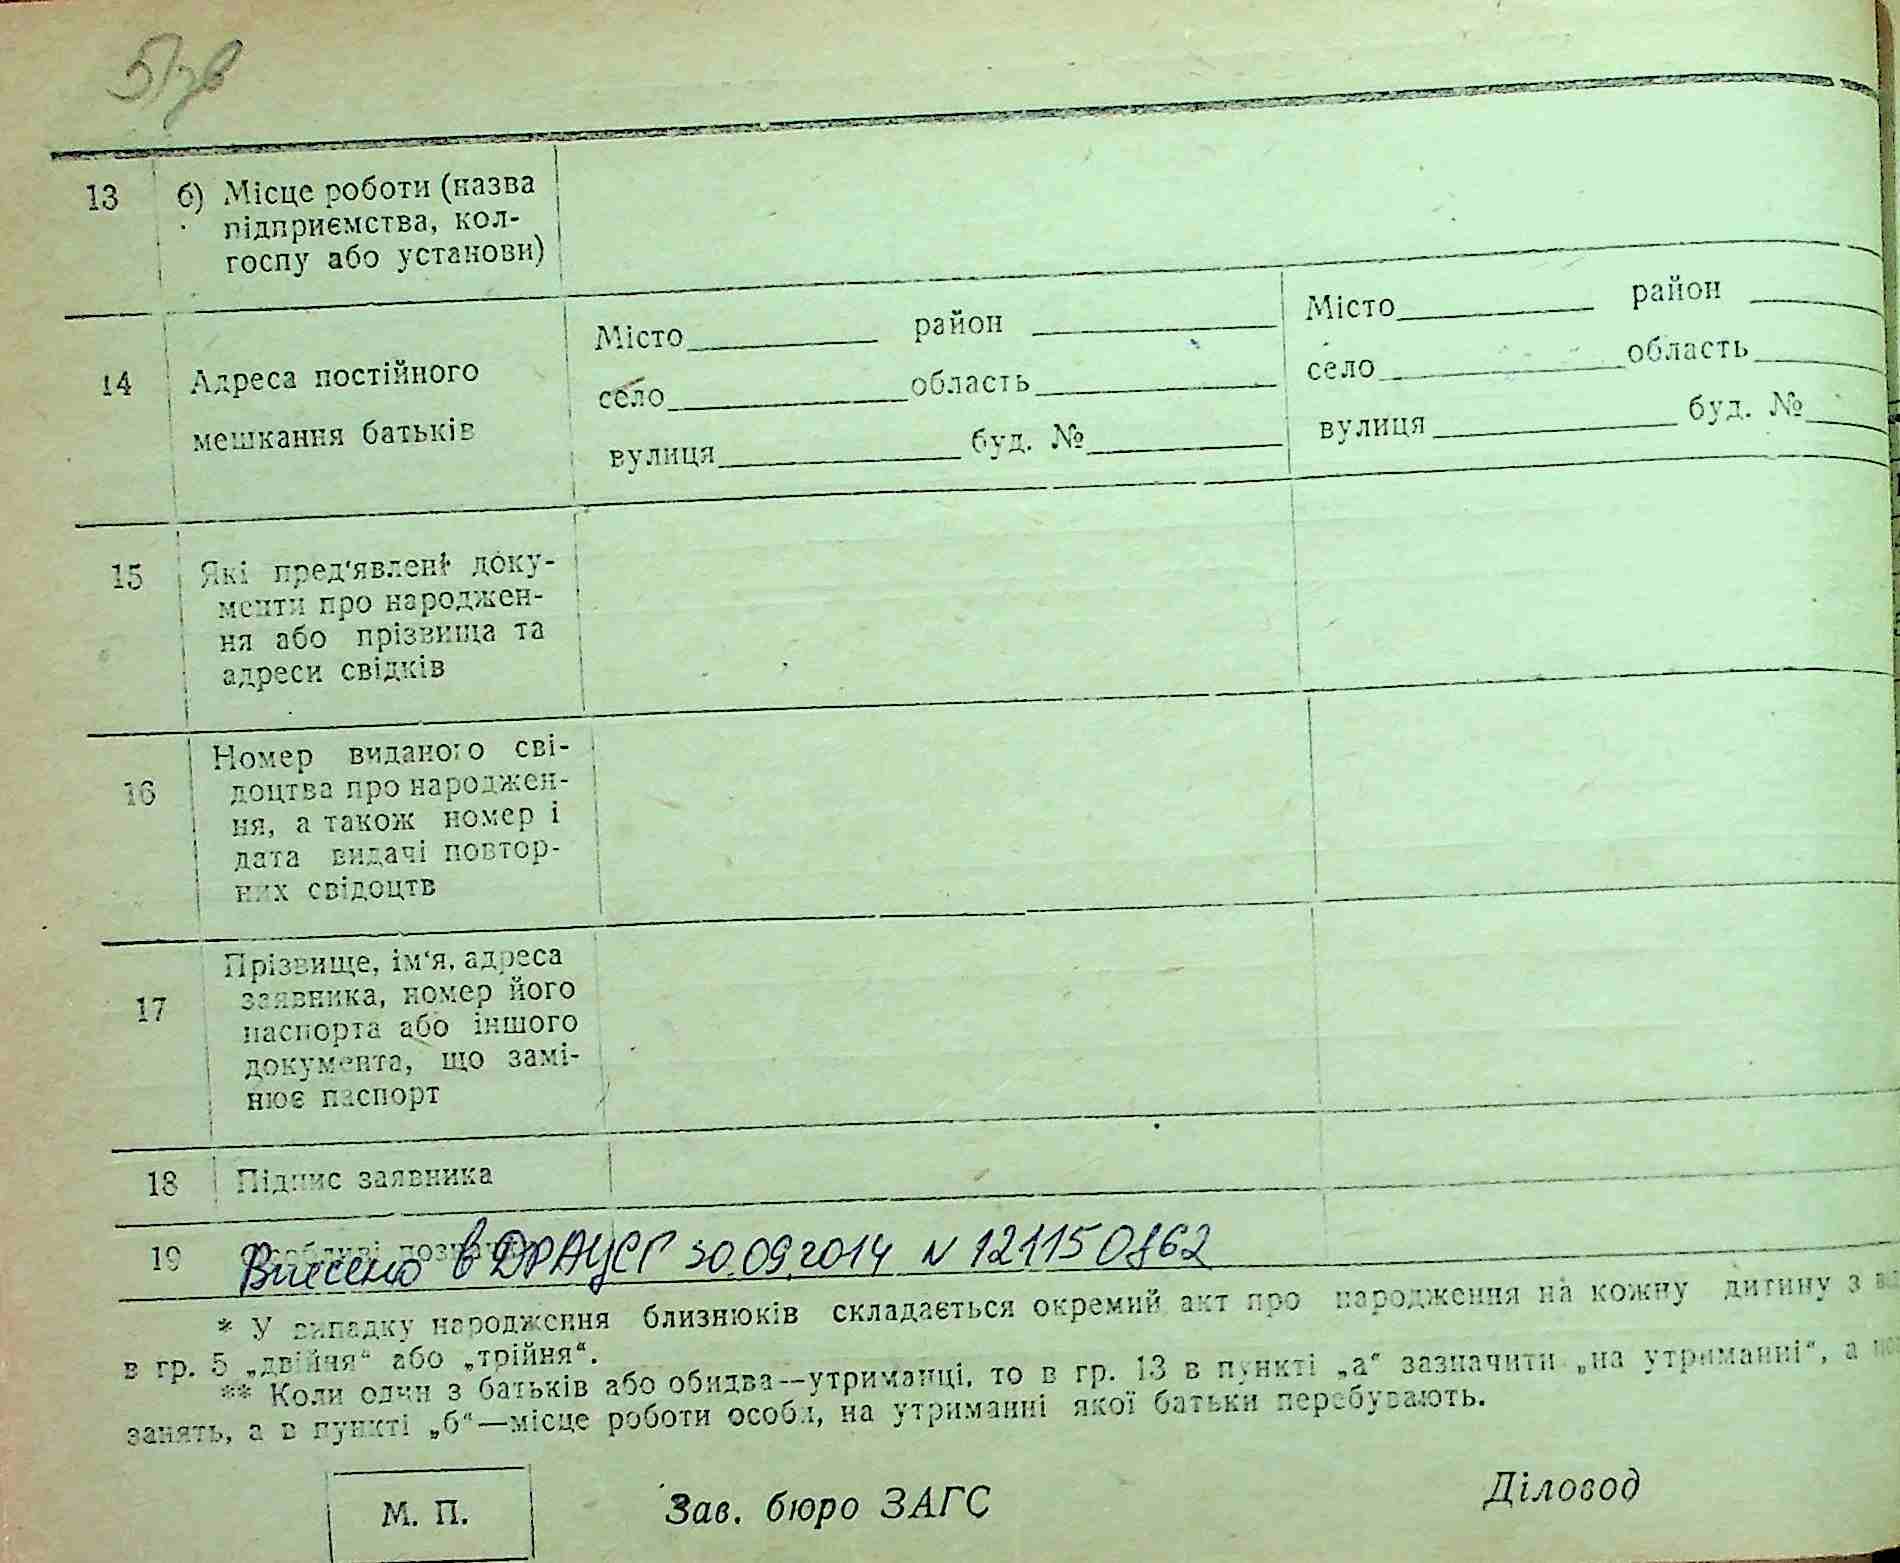 51зв
13 б) Місце роботи (назва
підприємства, кол-
госпу або установи)
14 Адреса постійного
мешкання батьків
Місто район
село область
вулиця буд. №
Місто район
село область
вулиця буд. №
15 Які пред'явлені доку-
менти про народжен-
ня або прізвища та
адреси свідків
16 Номер виданого сві-
доцтва про народжен-
ня, а також номер і
дата видачі повтор-
них свідоцтв
17 Прізвище, ім'я, адреса
заявника, номер його
паспорта або іншого
документа, що замі-
нює паспорт
18 Підпис заявника
19 Особливі позначки
Внесено в ДРАЦСГ 30.09.2014 N 121150862
* У випадку народження близнюків складається окремий акт про народження на кожну дитину з
в гр. 5 „двійня“ або „трійня“.
** Коли один з батьків або обидва—утриманці, то в гр. 13 в пункті „а“ зазначити „на утриманні“, а
занять, а в пункті „б“—місце роботи особи, на утриманні якої батьки перебувають.
М. П. Зав. бюро ЗАГС Діловод